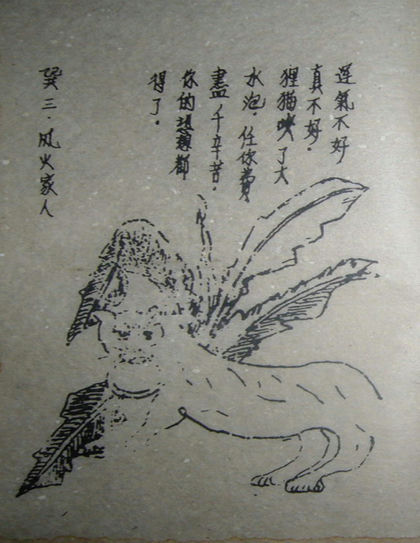 運氣不好
真不好。
狸猫咬了大
水泡。任你費
盡。千辛苦。
你的都
得了。
巽三·風火家人